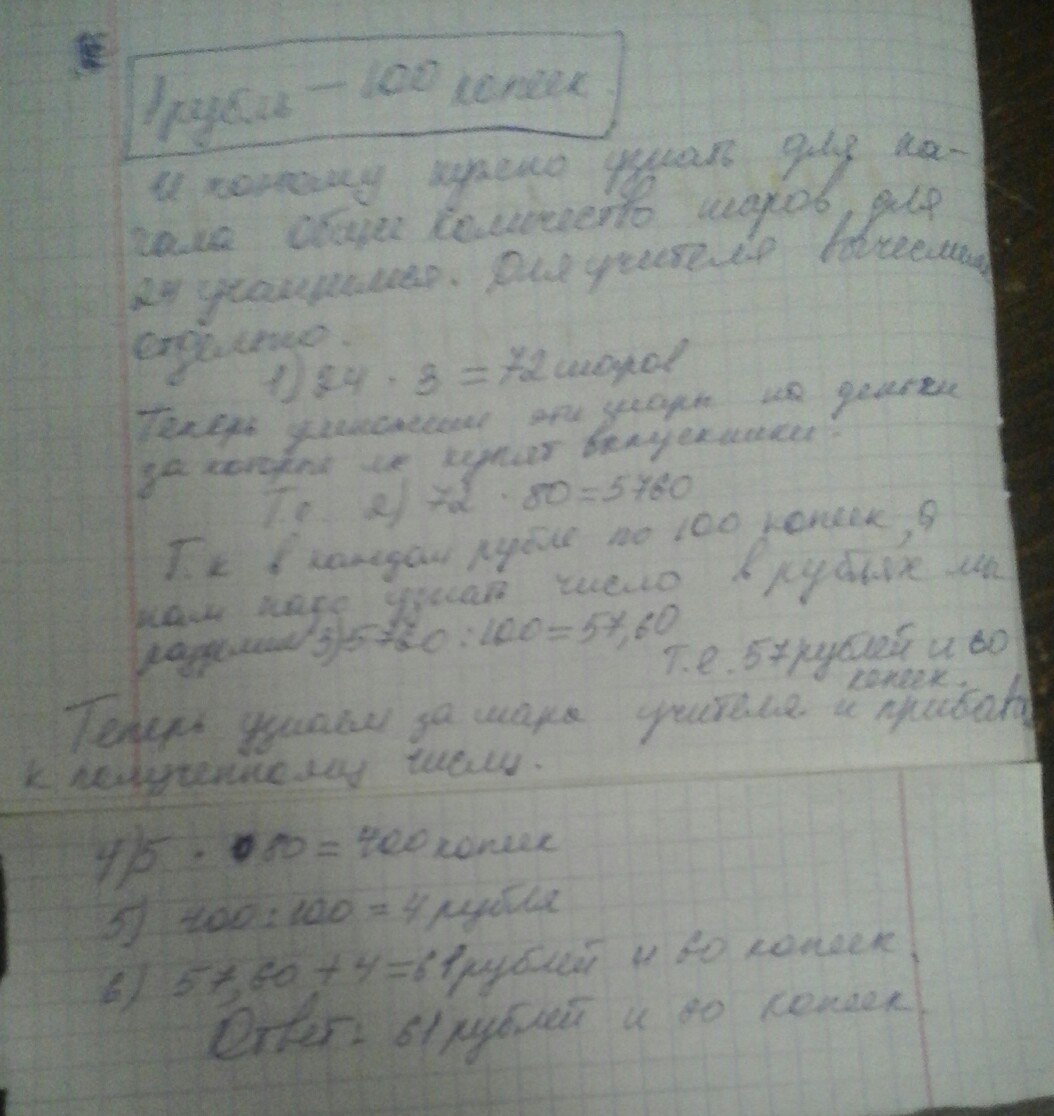 1 рубль — 100 копеек.
И поэтому нужно узнать для на-
чала общее количество шаров для
24 учащимся. Для учителя вычеслим
отдельно.
1) 24 · 3 = 72 шаров
Теперь умножим эти шары на деньги
за которые их купят выпускники.
Т.е. 2) 72 · 80 = 5760
Т.к в каждом рубле по 100 копеек, а
нам надо узнать число в рублях мы
разделим 3) 5760 : 100 = 57,60
Т.е. 57 рублей и 60
копеек.
Теперь узнаем за шары учителя и прибавим
к полученному числу.
4) 5 · 80 = 400 копеек
5) 400 : 100 = 4 рубля
6) 57,60 + 4 = 61 рублей и 60 копеек.
Ответ: 61 рублей и 60 копеек.